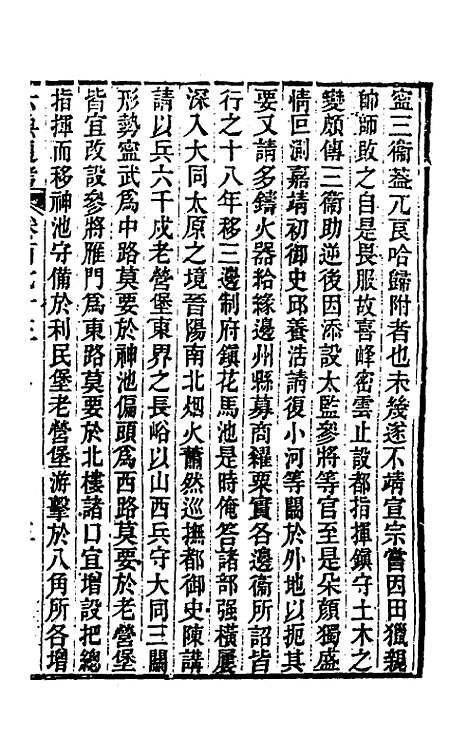 寍三衞葢兀良哈歸附者也未幾遂不靖宣宗嘗因田獵親
帥師敗之自是畏服故喜峰密雲止設都指揮鎮守土木之
變頗傳三衞助逆後因添設太監參將等官至是朵顏獨盛
情叵測嘉靖初御史邱養浩請復小河等關於外地以扼其
要又請多鑄火器給緣邊州縣募商糴粟實各邊衞所詔皆
行之十八年移三邊制府鎮花馬池是時俺答諸部强橫屢
深入大同太原之境晉陽南北烟火蕭然巡撫都御史陳講
請以兵六千戍老營堡東界之長峪以山西兵守大同三關
形勢寍武爲中路莫要於神池偏頭爲西路莫要於老營堡
皆宜改設參將雁門爲東路莫要於北樓諸口宜增設把總
指揮而移神池守備於利民堡老營堡游擊於八角所各增